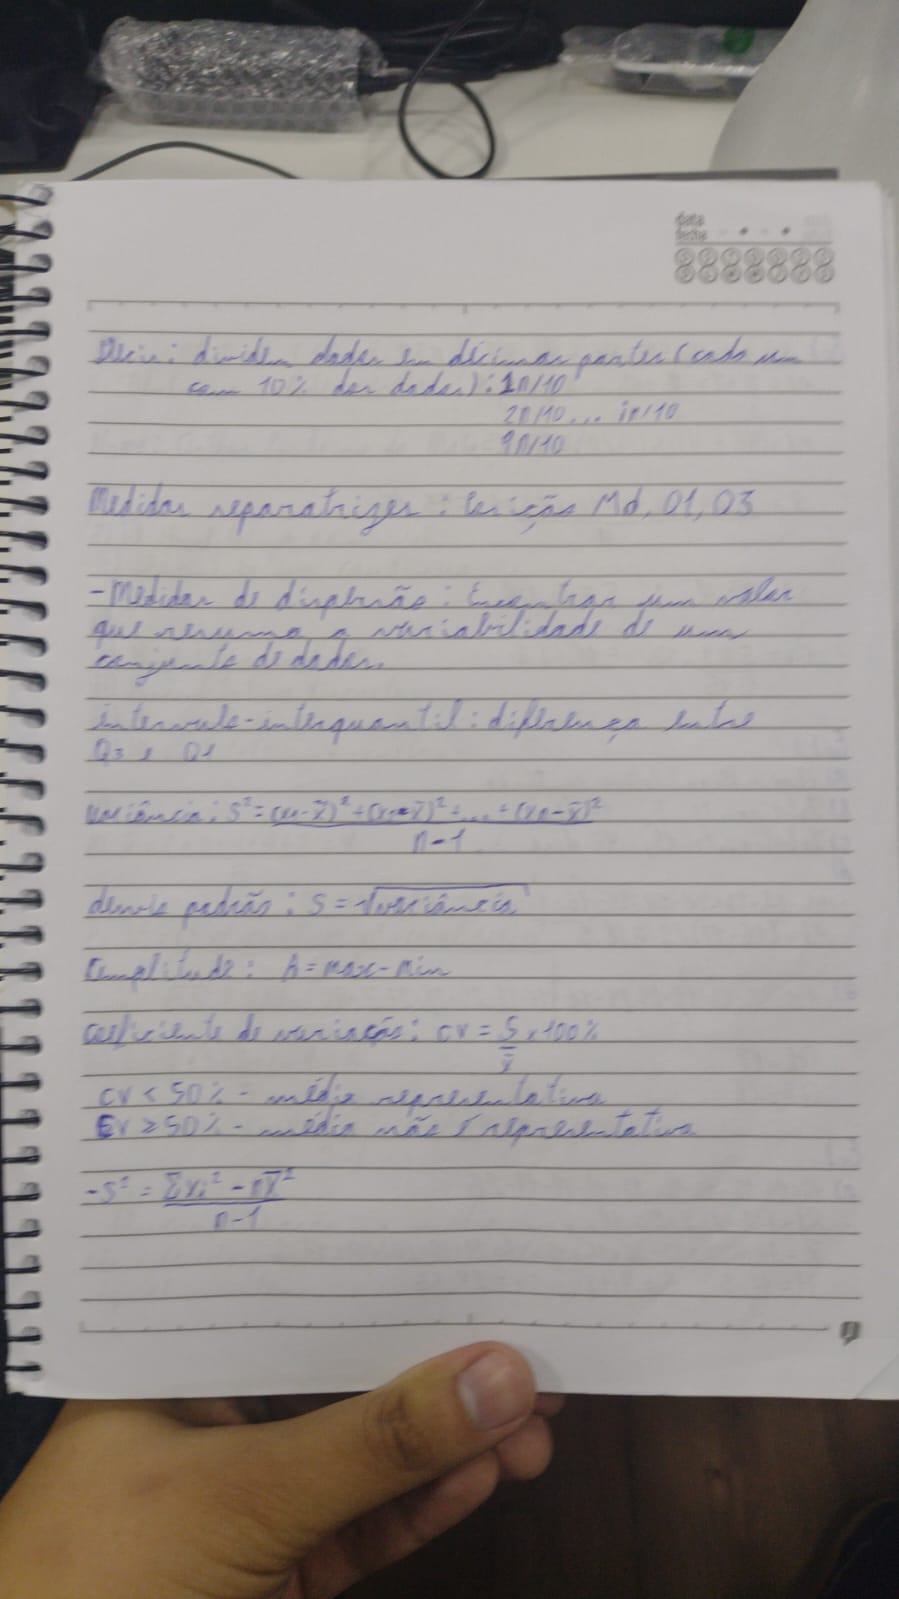 data
fecha
Decis: dividem dados em décimas partes (cada um
com 10% dos dados): 1n/10
2n/10... in/10
9n/10
Medidas separatrizes: Posição Md, Q1, Q3
- Medidas de dispersão: Encontrar um valor
que resuma a variabilidade de um
conjunto de dados.
intervalo-interquantil: diferença entre
Q3 e Q1
variância: S² = (x1-x̄)² + (x2-x̄)² + ... + (xn-x̄)²
n-1
desvio padrão: S = √variância
Amplitude: A = max - min
coeficiente de variação: CV = S x 100%
x̄
CV < 50% - média representativa
CV ≥ 50% - média não é representativa
- S² = Σxi² - nx̄²
n-1